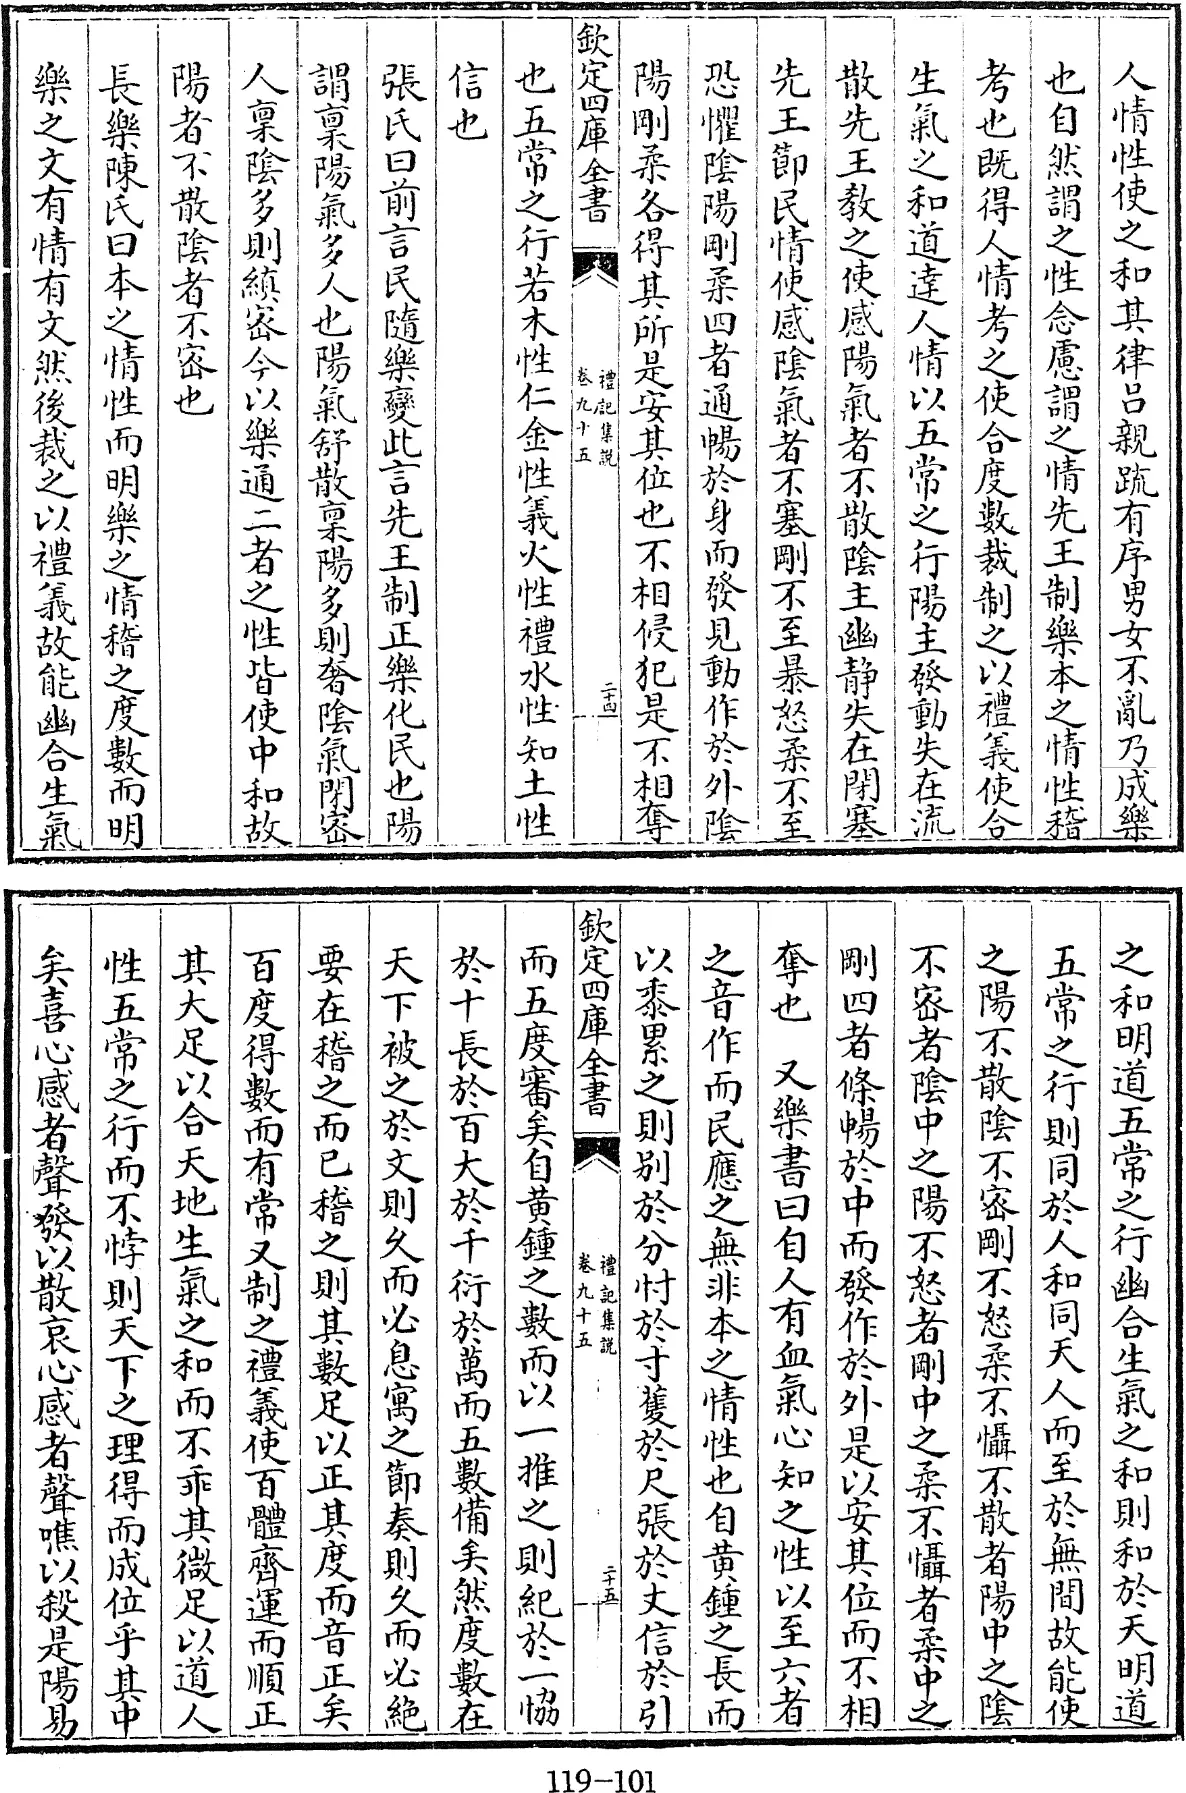 人情性使之和其律吕親疏有序男女不亂乃成樂
也自然謂之性念慮謂之情先王制樂本之情性稽
考也既得人情考之使合度數裁制之以禮義使合
生氣之和道達人情以五常之行陽主發動失在流
散先王教之使感陽氣者不散陰主幽静失在閉塞
先王節民情使感陰氣者不塞剛不至暴怒柔不至
恐懼陰陽剛柔四者通暢於身而發見動作於外陰
陽剛柔各得其所是安其位也不相侵犯是不相奪
欽定四庫全書
禮記集説
卷九十五
二十四
也五常之行若木性仁金性義火性禮水性知土性
信也
張氏曰前言民隨樂變此言先王制正樂化民也陽
謂稟陽氣多人也陽氣舒散稟陽多則奢陰氣閉密
人稟陰多則縝密今以樂通二者之性皆使中和故
陽者不散陰者不密也
長樂陳氏曰本之情性而明樂之情稽之度數而明
樂之文有情有文然後裁之以禮義故能幽合生氣
之和明道五常之行幽合生氣之和則和於天明道
五常之行則同於人和同天人而至於無間故能使
之陽不散陰不密剛不怒柔不懾不散者陽中之陰
不密者陰中之陽不怒者剛中之柔不懾者柔中之
剛四者條暢於中而發作於外是以安其位而不相
奪也　又樂書曰自人有血氣心知之性以至六者
之音作而民應之無非本之情性也自黄鍾之長而
以黍累之則别於分忖於寸蒦於尺張於丈信於引
欽定四庫全書
禮記集説
卷九十五
二十五
而五度審矣自黄鍾之數而以一推之則紀於一協
於十長於百大於千衍於萬而五數備矣然度數在
天下被之於文則久而必息寓之節奏則久而必絶
要在稽之而已稽之則其數足以正其度而音正矣
百度得數而有常又制之禮義使百體齊運而順正
其大足以合天地生氣之和而不乖其微足以道人
性五常之行而不悖則天下之理得而成位乎其中
矣喜心感者聲發以散哀心感者聲噍以殺是陽易
119-101